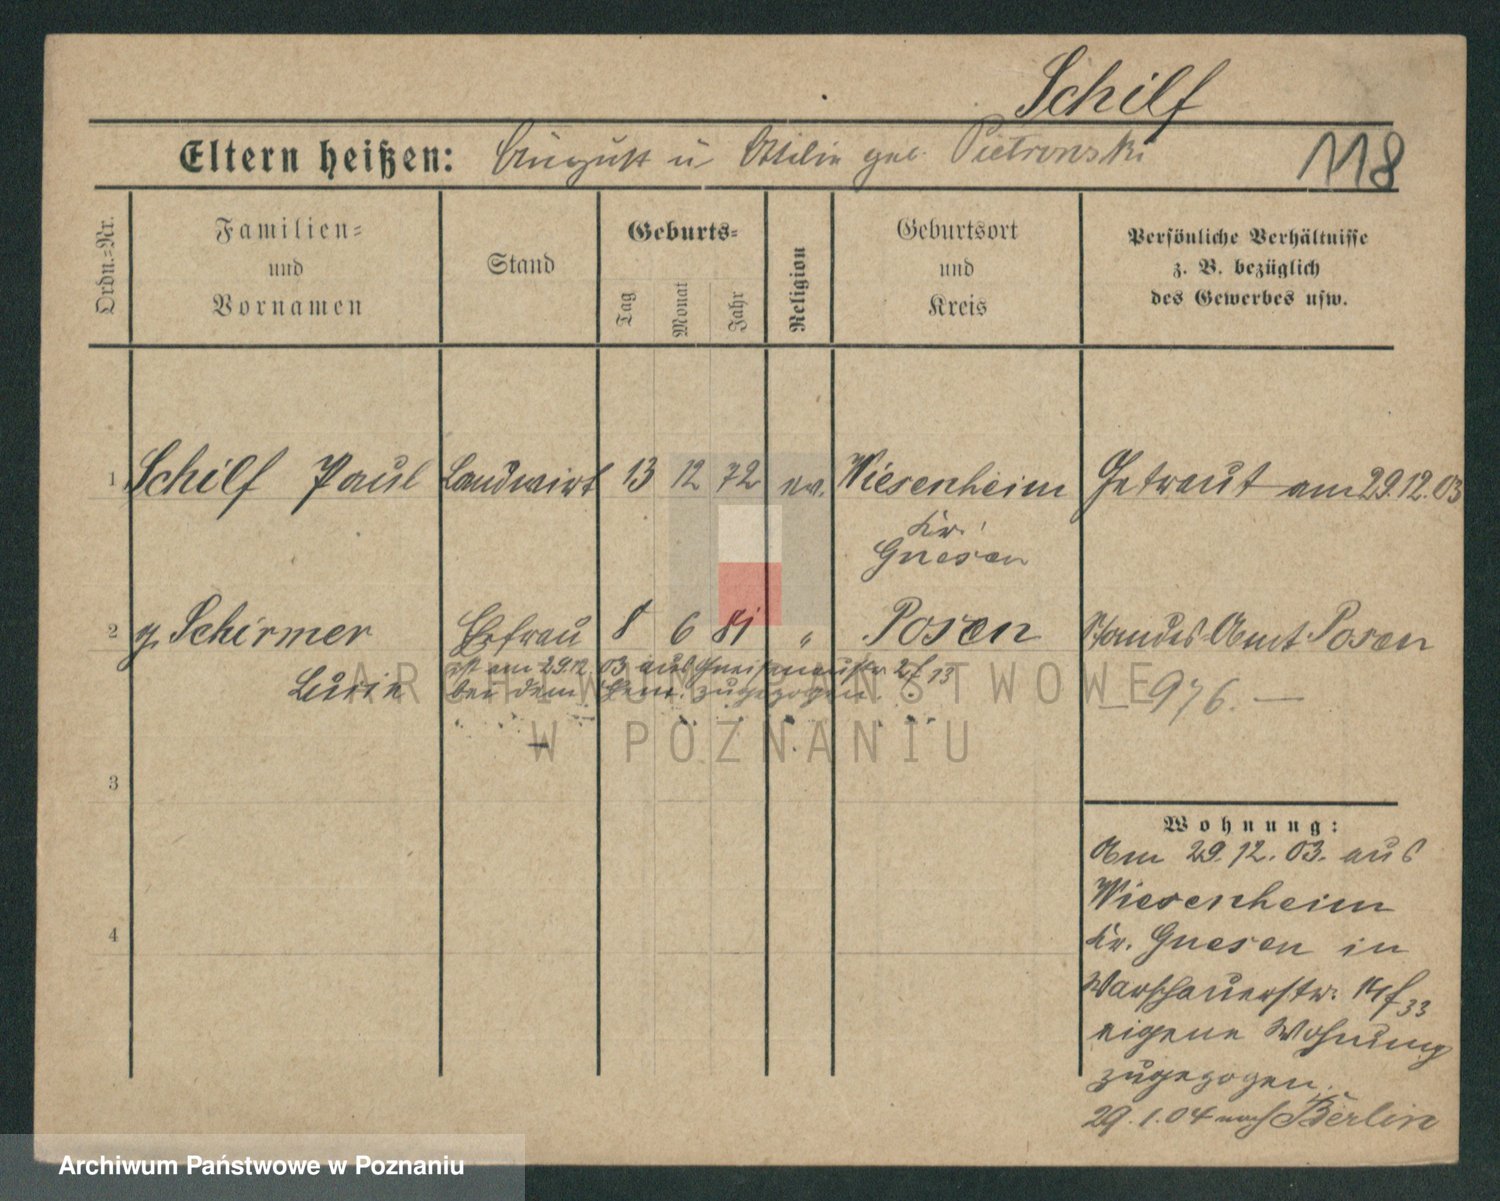 Schilf
Eltern heißen: August u Ottilie geb. Pietrowski
118
Ordn.=Nr.
Familien=
und
Vornamen
Stand
Geburts=
Tag
Monat
Jahr
Religion
Geburtsort
und
Kreis
Persönliche Verhältnisse
z. B. bezüglich
des Gewerbes usw.
1 Schilf Paul Landwirt 13 12 72 ev. Wiesenheim Getraut am 29.12.03
Kr.
Gnesen
2 g. Schirmer Ehefrau 8 6 81 " Posen Standes Amt Posen
Lucie
ist am 29.12.03 aus Gneisenaustr. 2 f 13
bei dem Ehem. zugezogen.
— 976. —
3
4
Wohnung:
Am 29.12.03. aus
Wiesenheim
Kr. Gnesen in
Warschauerstr. 14 f 33
eigene Wohnung
zugezogen.
29.1.04 nach Berlin
ARCHIWUM PAŃSTWOWE
W POZNANIU
Archiwum Państwowe w Poznaniu